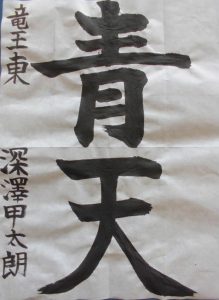 青天
竜王東
深澤甲太朗